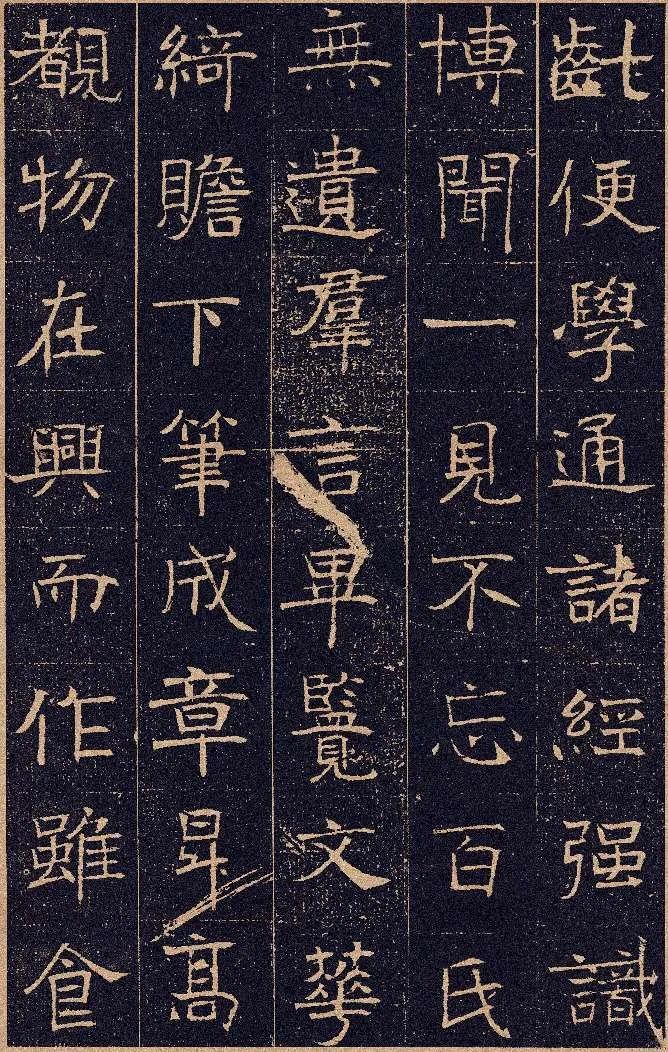 齔便學通諸經强識
博聞一見不忘百氏
無遺羣言畢覽文華
綺贍下筆成章昇髙
覩物在興而作雖食